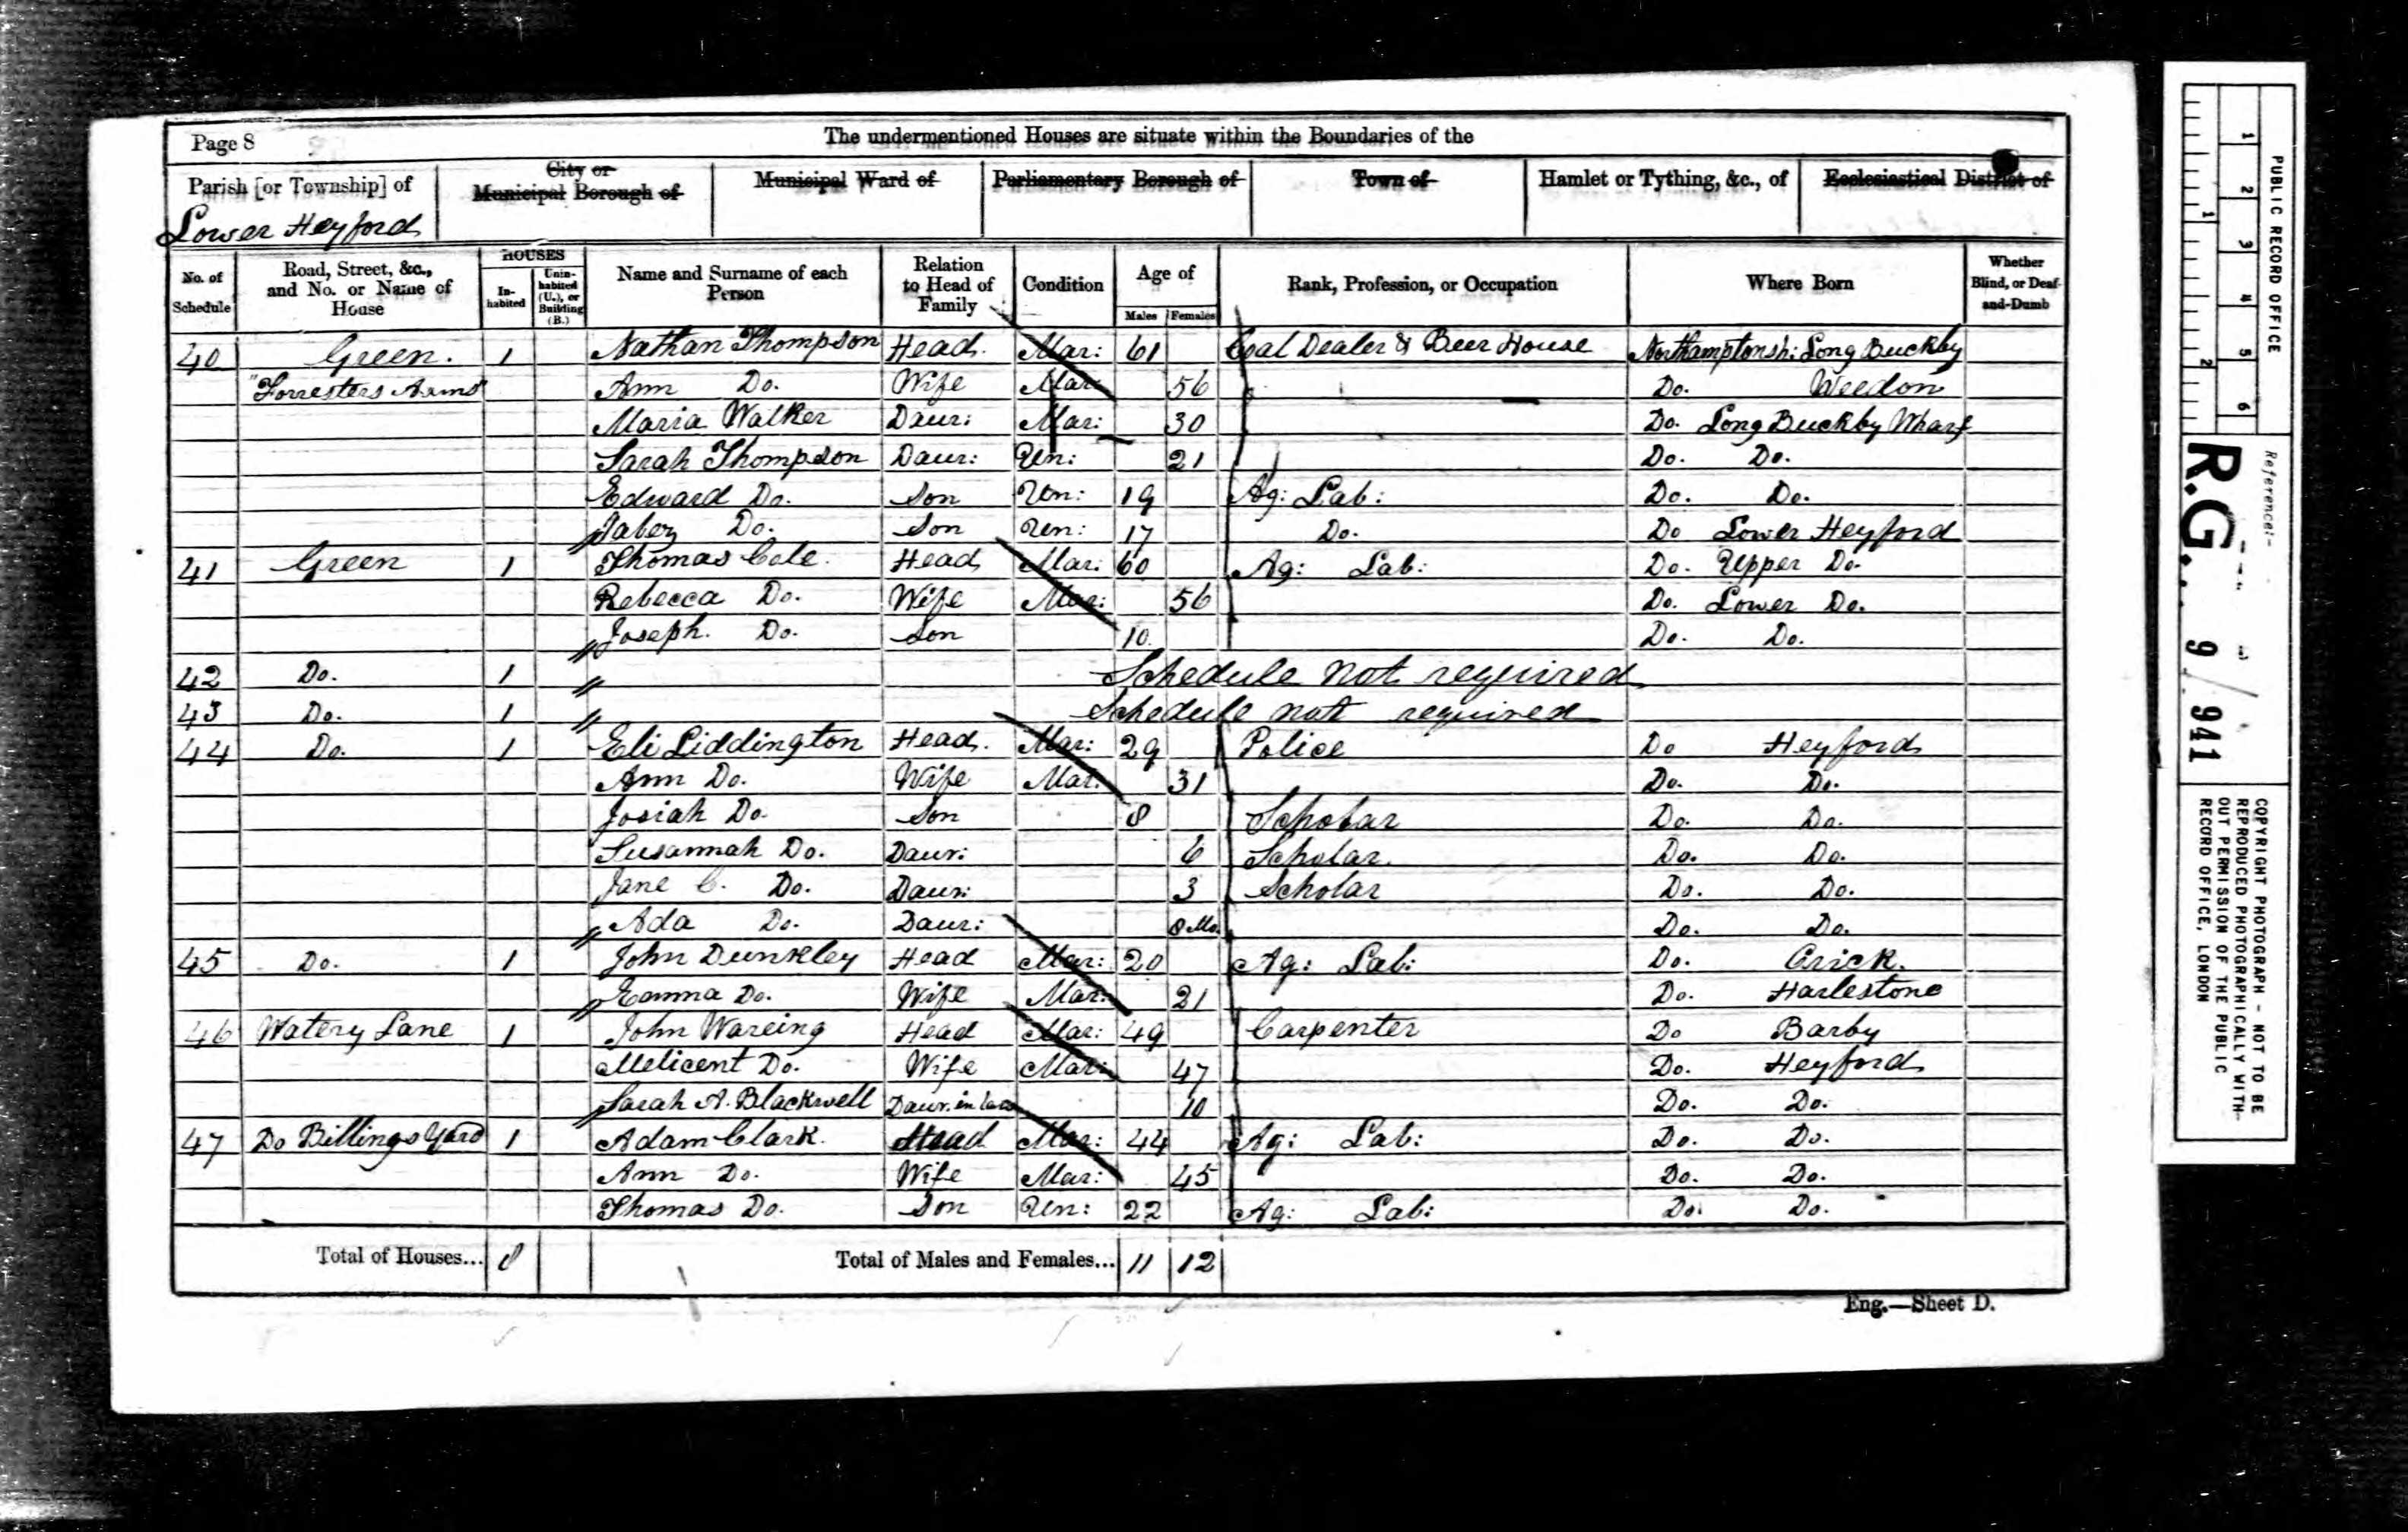 Page 8
The undermentioned Houses are situate within the Boundaries of the
Parish [or Township] of
Lower Heyford
City or
Municipal Borough of
Municipal Ward of
Parliamentary Borough of
Town of
Hamlet or Tything, &c., of
Ecclesiastical District of
No. of Schedule
Road, Street, &c., and No. or Name of House
HOUSES
In-habited
Unin-habited (U.), or Building (B.)
Name and Surname of each Person
Relation to Head of Family
Condition
Age of
Males
Females
Rank, Profession, or Occupation
Where Born
Whether Blind, or Deaf-and-Dumb
40 Green. 1 Nathan Thompson Head. Mar: 61 Coal Dealer & Beer House Northamptonsh: Long Buckby
"Forresters Arms" Ann Do. Wife Mar: 56 Do. Weedon
Maria Walker Daur: Mar: 30 Do. Long Buckby Wharf
Sarah Thompson Daur: Un: 21 Do. Do.
Edward Do. Son Un: 19 Ag: Lab: Do. Do.
Jabez Do. Son Un: 17 Do. Do Lower Heyford
41 Green 1 Thomas Cole. Head Mar: 60 Ag: Lab: Do. Upper Do.
Rebecca Do. Wife Mar: 56 Do. Lower Do.
Joseph. Do. Son 10. Do. Do.
42 Do. 1 Schedule not required
43 Do. 1 Schedule not required
44 Do. 1 Eli Liddington Head. Mar: 29 Police Do Heyford
Ann Do. Wife Mar. 31 Do. Do.
Josiah Do. Son 8 Scholar Do. Do.
Susannah Do. Daur: 6 Scholar. Do. Do.
Jane C. Do. Daur: 3 Scholar Do. Do.
Ada Do. Daur: 8 Mo. Do. Do.
45 Do. 1 John Dunkley Head Mar: 20 Ag: Lab: Do. Crick.
Emma Do. Wife Mar: 21 Do. Harlestone
46 Watery Lane 1 John Wareing Head Mar: 49 Carpenter Do Barby
Melicent Do. Wife Mar: 47 Do. Heyford
Sarah A. Blackwell Daur. in law 10 Do. Do.
47 Do Billings Yard 1 Adam Clark. Head Mar: 44 Ag: Lab: Do. Do.
Ann Do. Wife Mar: 45 Do. Do.
Thomas Do. Son Un: 22 Ag: Lab: Do. Do.
Total of Houses... 8 Total of Males and Females... 11 12
Eng.—Sheet D.
PUBLIC RECORD OFFICE
1 2 3 4 5 6
1 2
Reference:-
R.G. 9/941
COPYRIGHT PHOTOGRAPH - NOT TO BE
REPRODUCED PHOTOGRAPHICALLY WITH-
OUT PERMISSION OF THE PUBLIC
RECORD OFFICE, LONDON